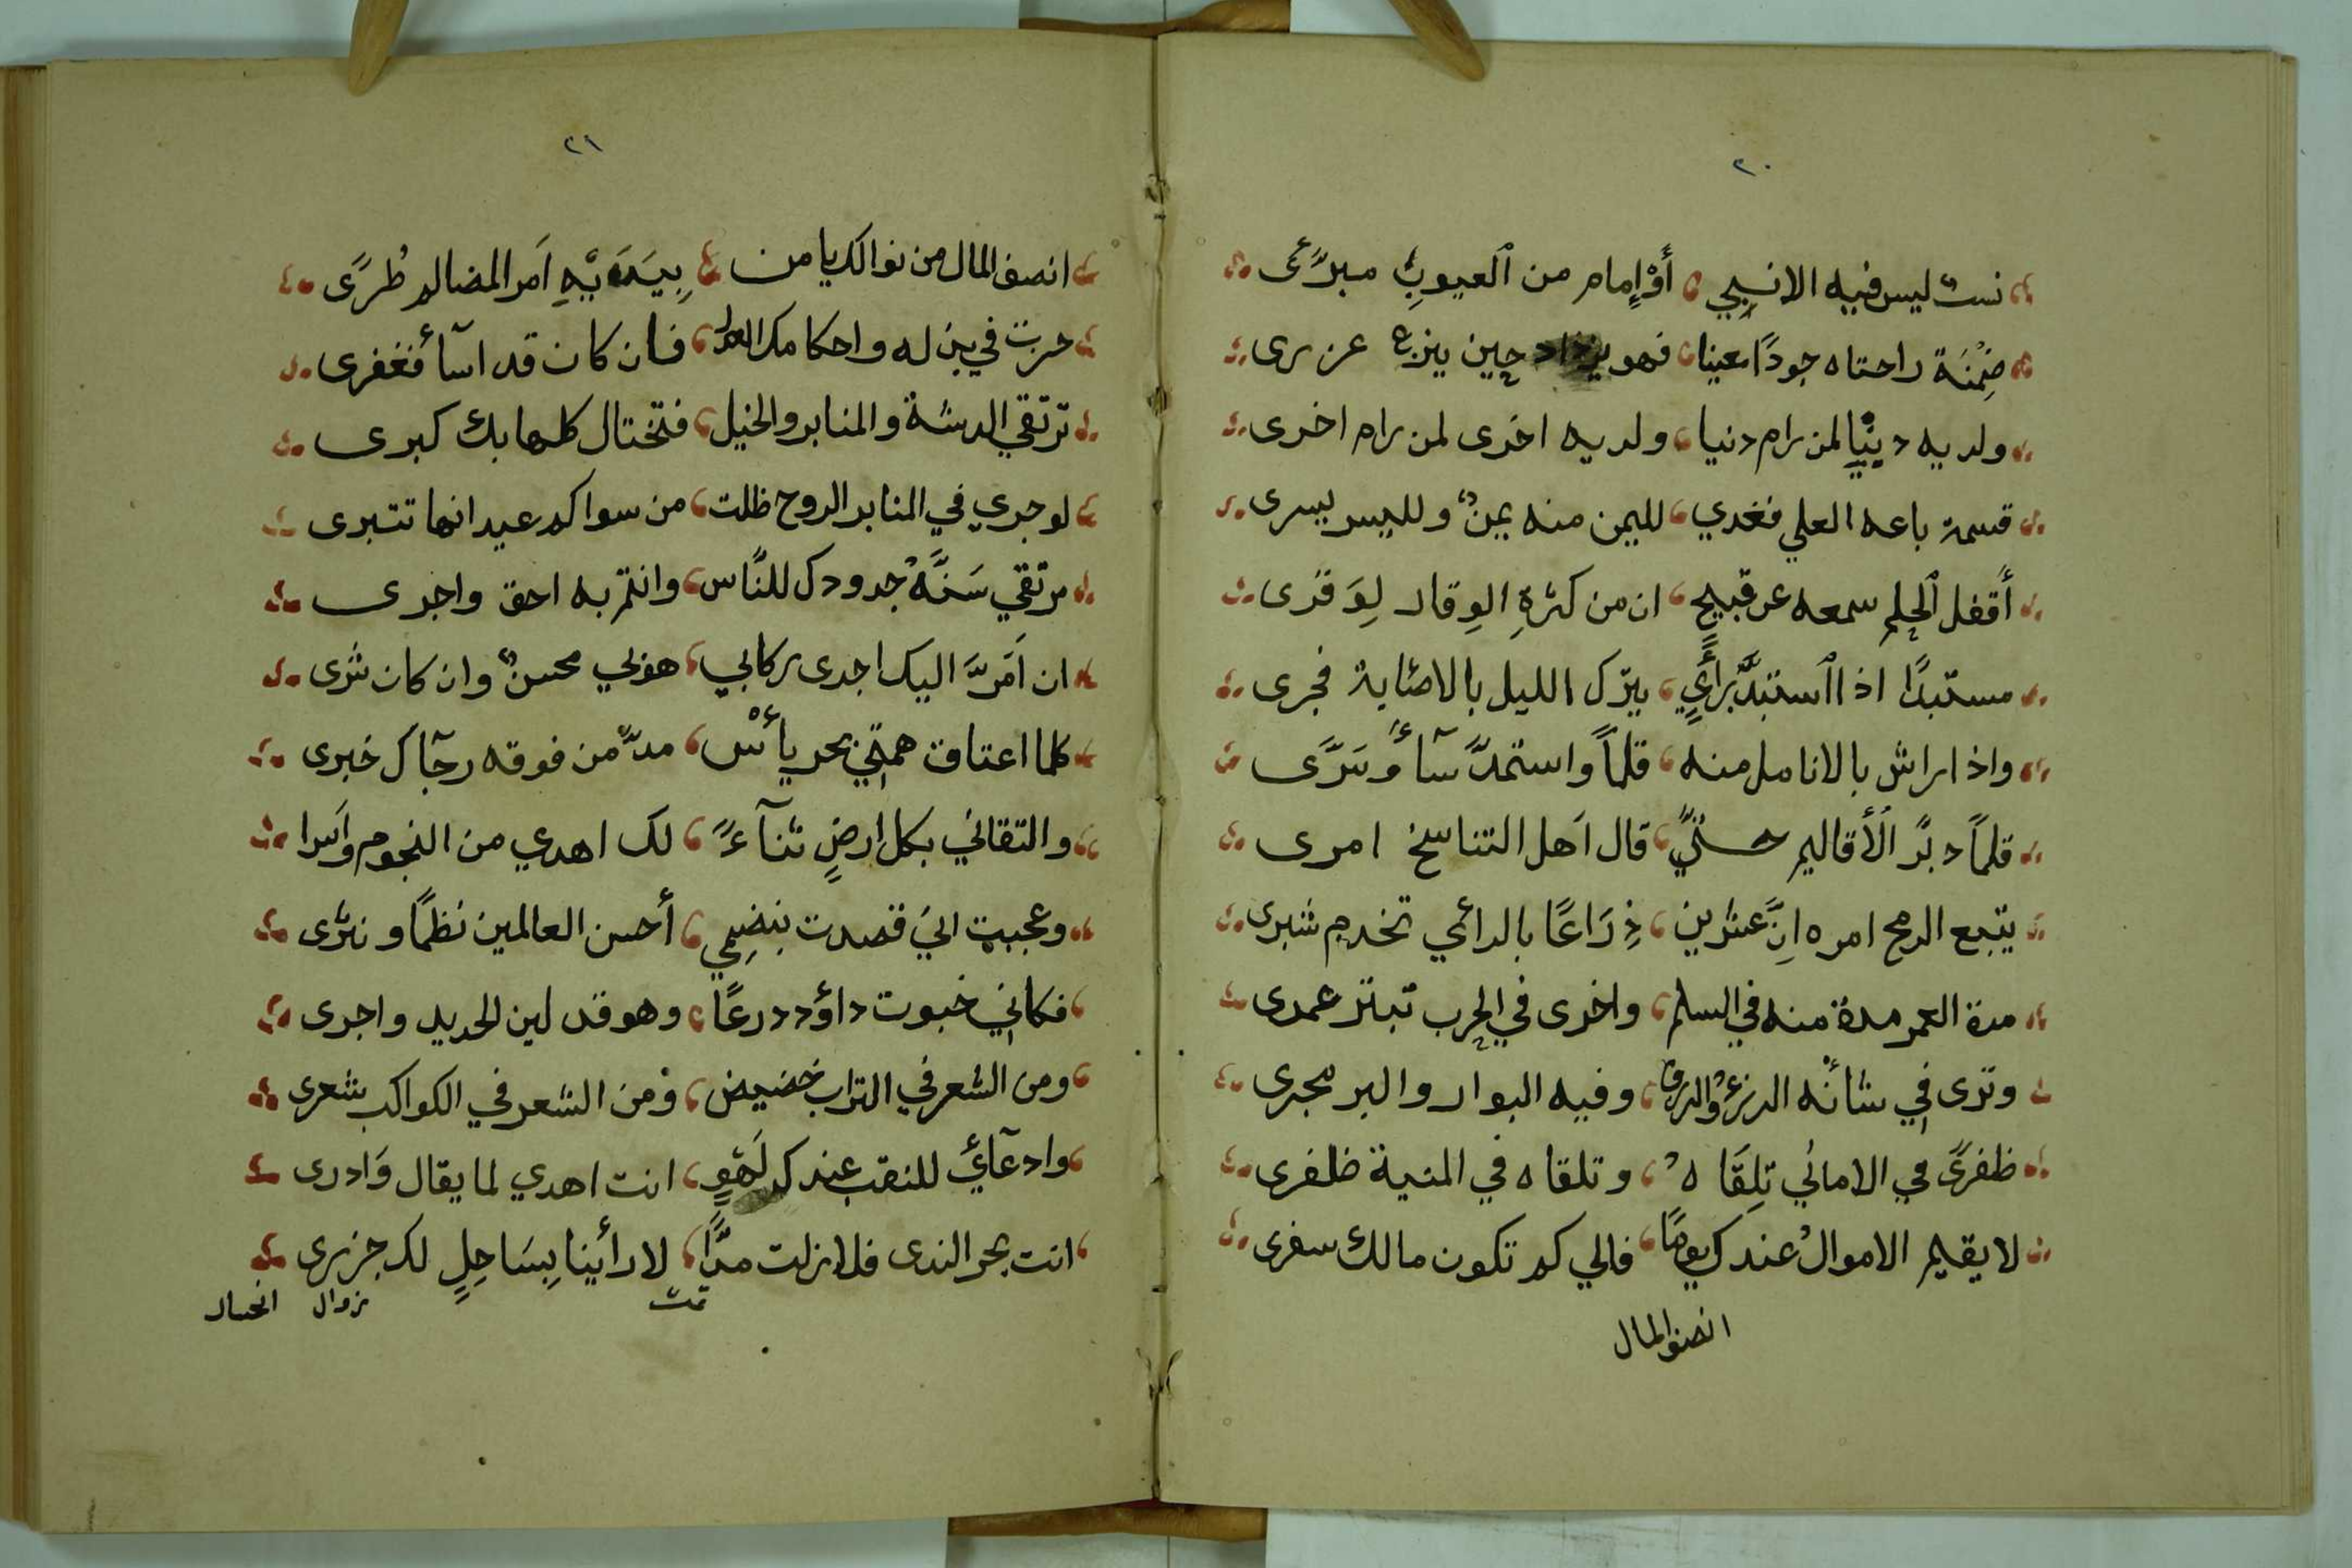 ٢٠
نست ليس فيه الانبيي أَوْ إِمام من ٱلعيوبِ مبرَّئى
ضِمْنَة راحتاه جودًا معينا فهو يزداد حين ينزع عزرى
ولديه دينْيا لمن رام دنيا ولديه اخرى لمن رام اخرى
قسمة باعه العلي فغدي لليمن منه يمنٌ ولليسر يسرى
أَقفل ٱلحِلم سمعه عن قبيحٍ ان من كثرةِ الوِقار لِوَقرَى
مستبدًا اذا ٱستبدَّ برأيٍ يترك الليل بالاصابة فجرى
واذا راش بالانامل منه قلماً واستمدَّ سآءً وسَرَّى
قلماً دبَّر ٱلأقاليم حتيَّ قال اَهل التناسخ امرى
يتبع الرمح امره اِنَّ عشرين ذِرَاعًا بالرائي تخدم شبرى
مدة العمر مدة منه في السلم واخرى في الحرب تبتز عمرى
وترى في شأنه الدرعُ والرزق وفيه البوار والبر مجرى
ظفرىً في الاماني تِلقَاهُ وتلقاه في المنية ظلفرى
لا يقيم الاموالُ عندك يومًا فالي كم تكون مالك سفرى
انصف المال
٢١
انصف المال من نوالك يا من بِيَدَيْهِ اَمر المضالم طُرَّى
حرت في بذله واحكامك العدل فان كان قد اسآ فغفرى
ترتقي الدسة والمنابر والخيل فتختال كلها بك كبرى
لو جرى في المنابر الروح ظلت من سواكم عيدانها تتبرى
مرتقي سَنَّهُ جدودك للنَّاس وانتم به احق واجرى
ان اَمَرَّ اليك اجدى ركابي هو بي محسنٌ وان كان شرى
كلما اعتاق همتي بحر يأس مدَّ من فوقه رجآك خبرى
والتقاني بكل ارضٍ ثنآءً لك اهدي من النجوم واَسرا
وعجبت اني قصدت بنضمي أحسن العالمين نظمًا ونثرى
فكانني خبوت داؤد درعًا وهو قد لين الحديد واجرى
ومن الشعر في التراب خضيض ومن الشعر في الكواكب شعرى
وادعآئي للنقب عندك لَهْوٍ انت اهدي لما يقال وَادرى
انت بحر الندى فلا زلت مدًّا لا رأينا بِسَاحِلٍ لك جزرى
تمت زوال